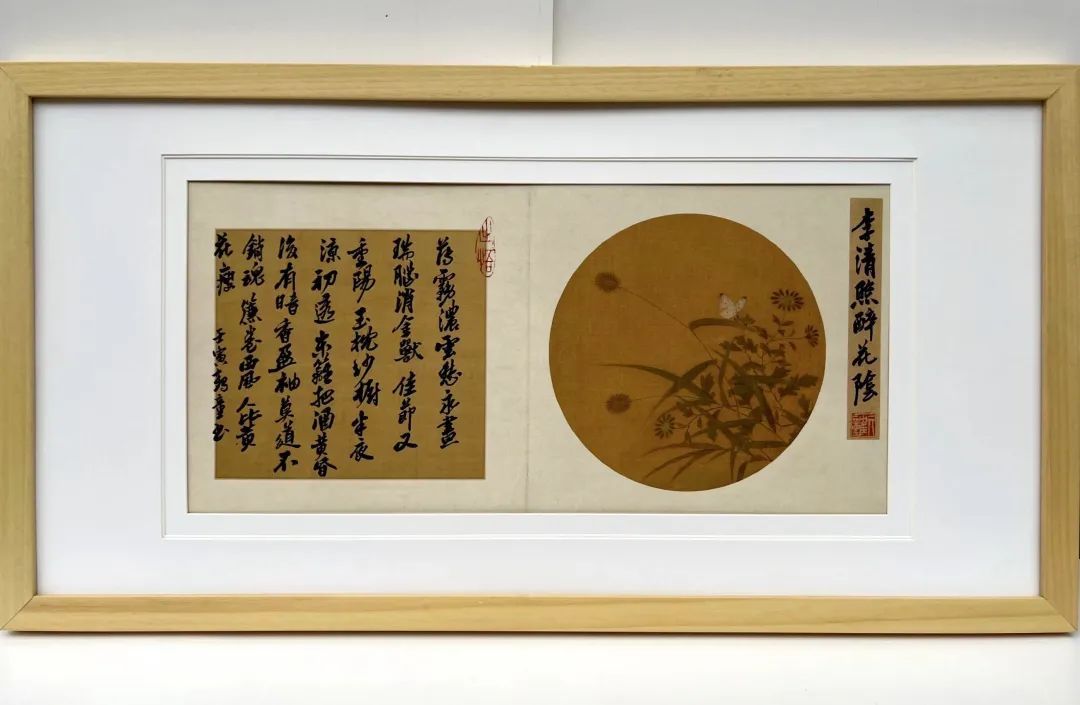 李清照醉花陰
薄霧濃雲愁永晝
瑞腦消金獸佳節又
重陽玉枕紗櫥半夜
涼初透東籬把酒黃昏
後有暗香盈袖莫道不
銷魂簾卷西風人比黃
花瘦
壬寅